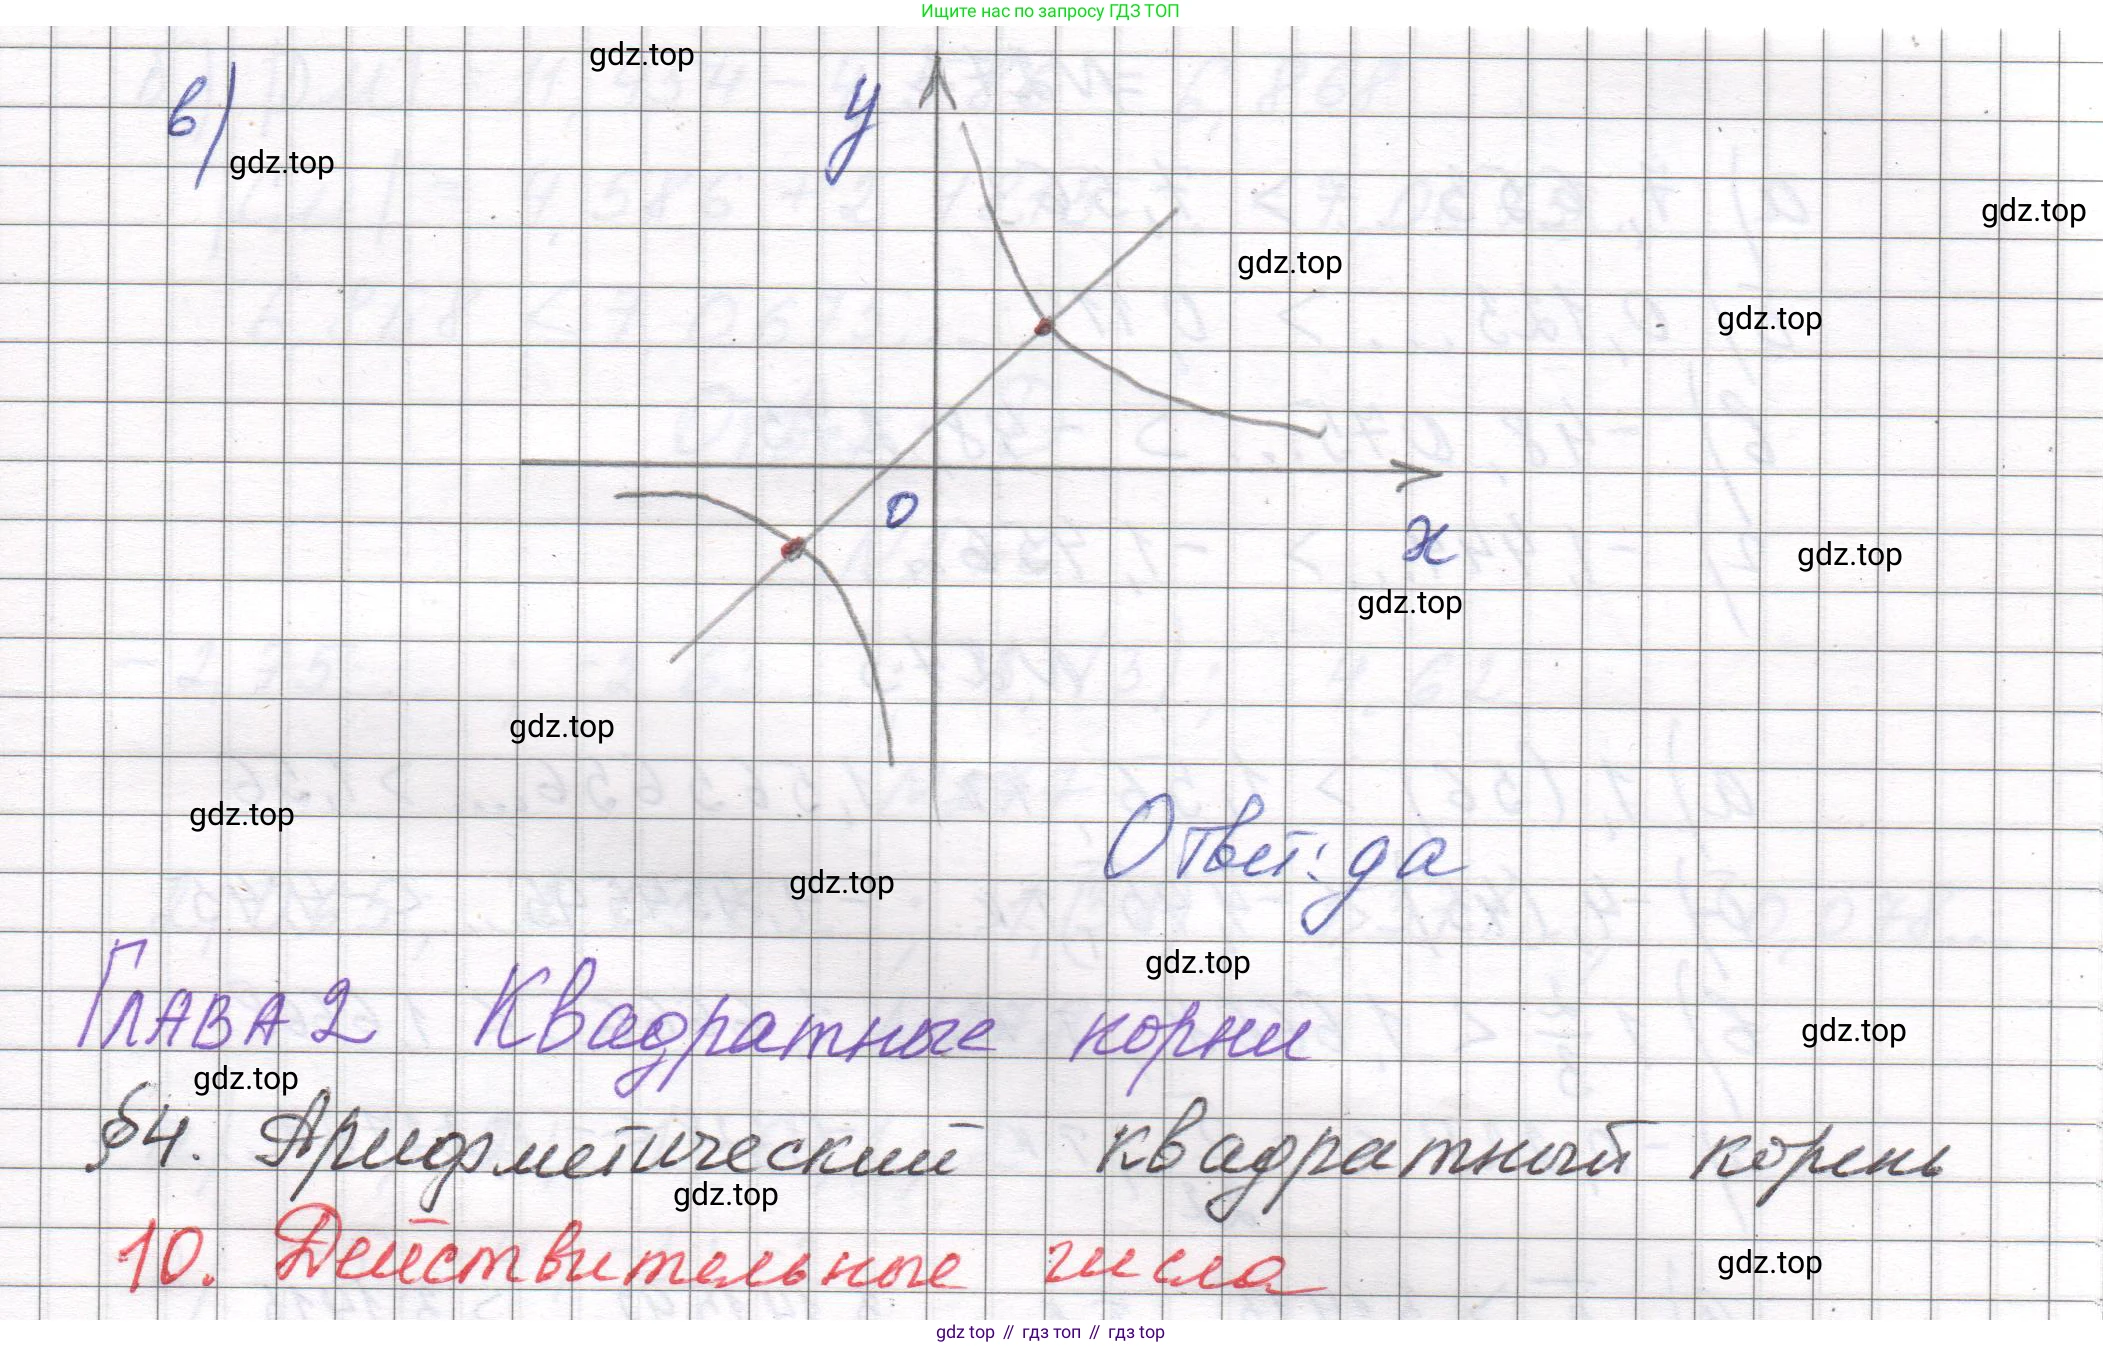 Ищите нас по запросу ГДЗ ТОП
gdz.top
в)
y
gdz.top
gdz.top
gdz.top
gdz.top
0
x
gdz.top
gdz.top
gdz.top
gdz.top
Ответ: да
gdz.top
gdz.top
Глава 2 Квадратные корни
gdz.top
gdz.top
§4. Арифметический квадратный корень
gdz.top
10. Действительные числа
gdz.top
gdz top // гдз топ // gdz top